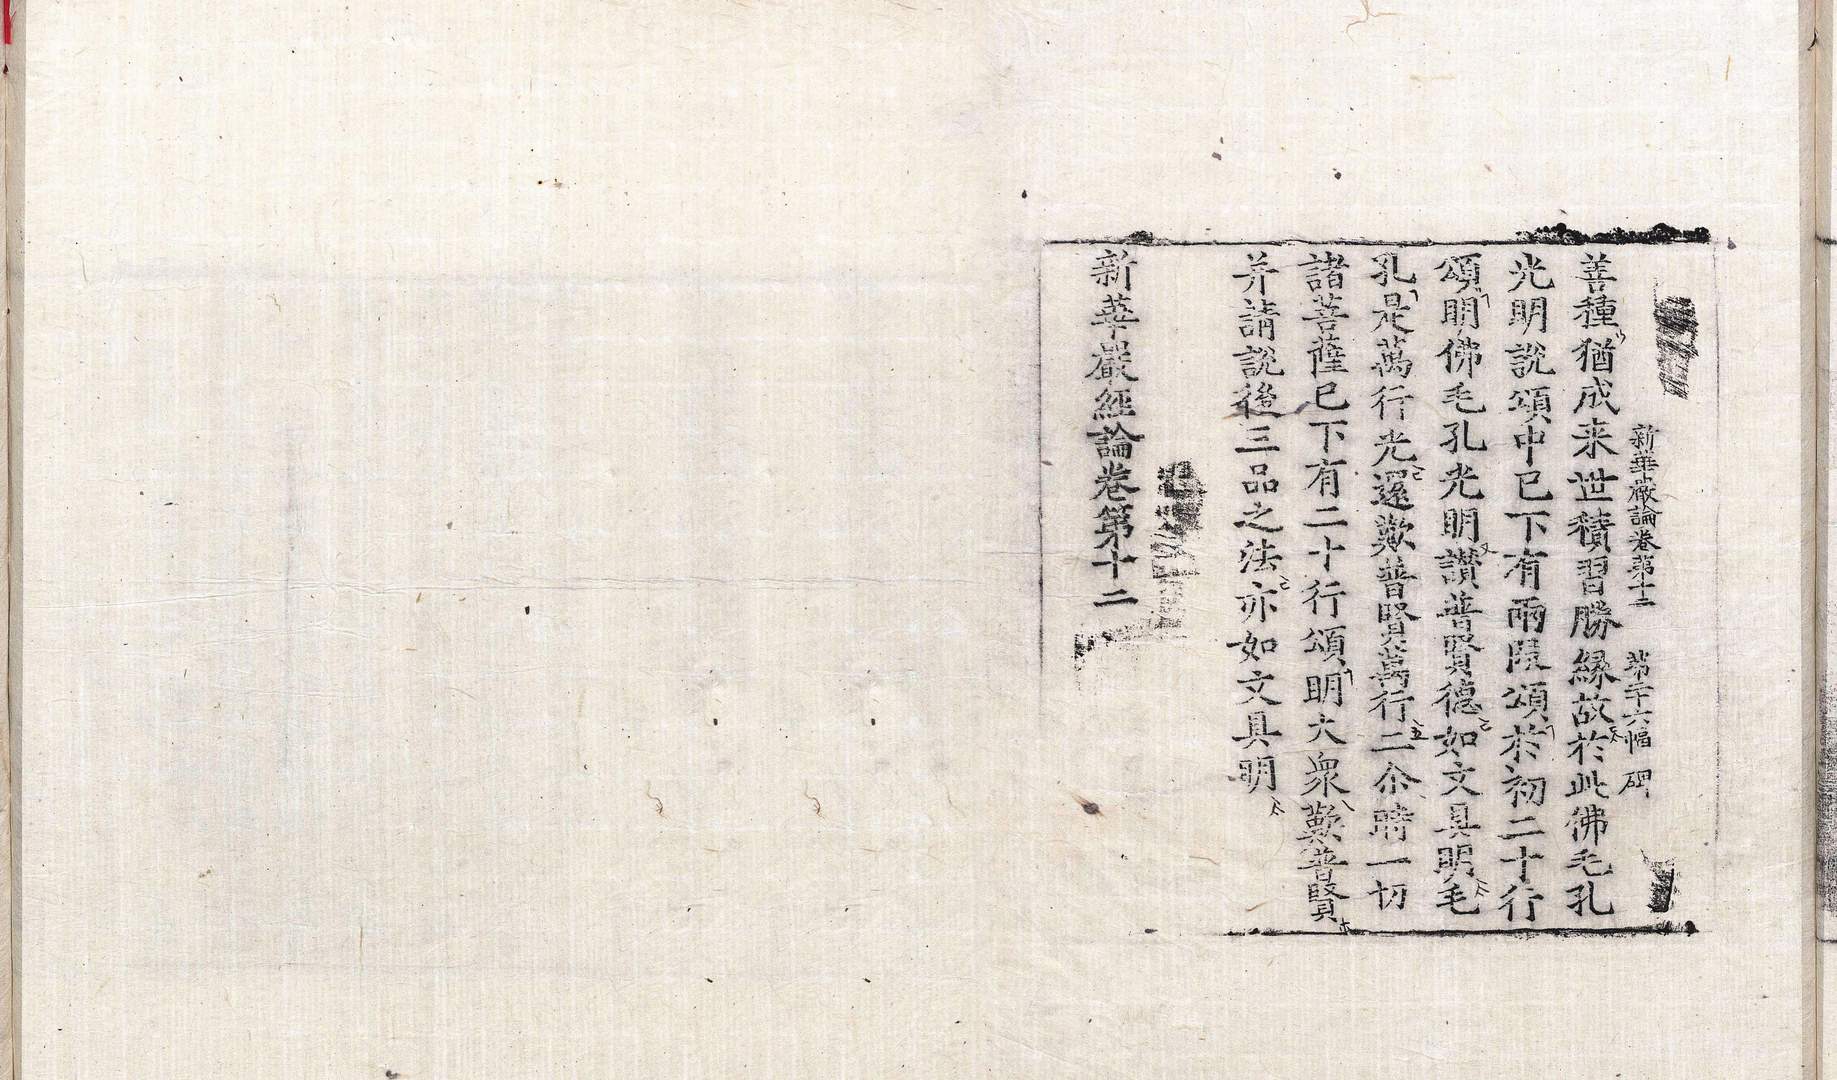 新華嚴論卷第十二 第二十六幅 碑
善種猶成来世積習勝縁故於此佛毛孔
光明說頌中已下有兩段頌於初二十行
頌明佛毛孔光明讃普賢德如文具明毛
孔是萬行光還歎普賢萬行二尒時一切
諸菩薩已下有二十行頌明大衆歎普賢
并請說後三品之法亦如文具明
新華嚴經論卷第十二